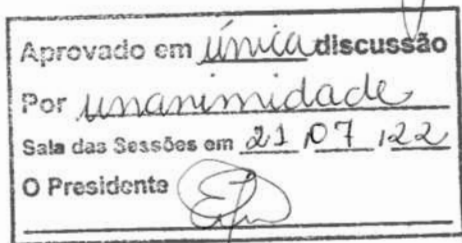 Aprovado em única discussão
Por unanimidade
Sala das Sessões em 21 07 22
O Presidente